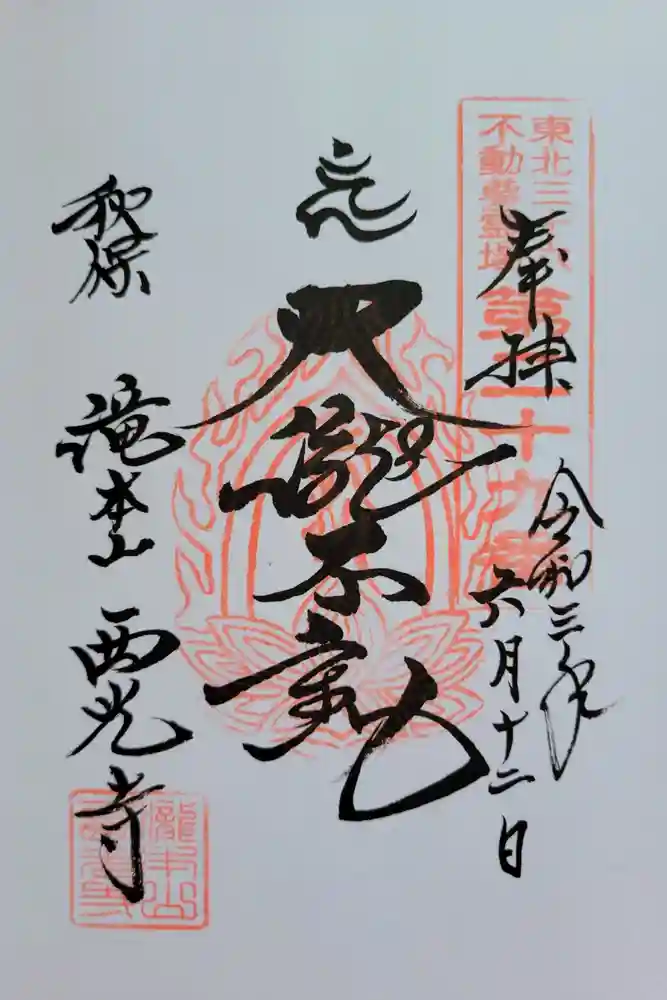 東北三十六
不動尊霊場
第二十九番
奉拝
令和三年
六月十二日
大瀧不動
秋保
滝本山
西光寺